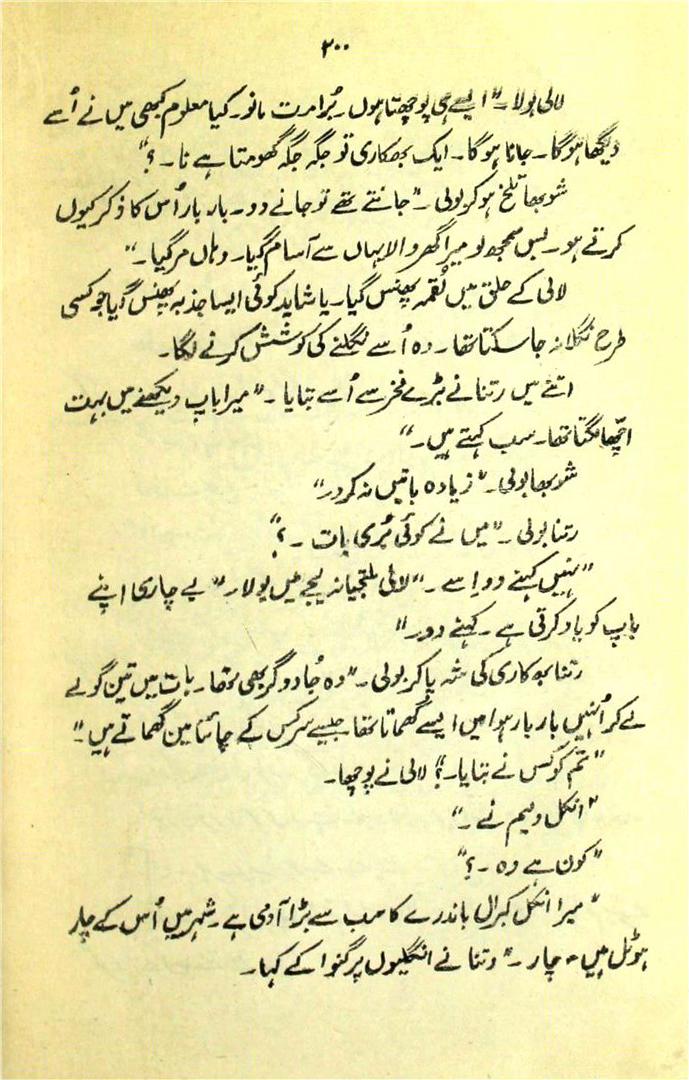 ۲۰۰
لالی بولا۔ "ایسے ہی پوچھتا ہوں۔ بُرا مت مانو۔ کیا معلوم کبھی میں نے اُسے
دیکھا ہوگا۔ جانا ہوگا۔ ایک بھکاری تو جگہ جگہ گھومتا ہے نا۔؟"
شوبھا تلخ ہو کر بولی۔ "جانتے تھے تو جانے دو۔ بار بار اُس کا ذکر کیوں
کرتے ہو۔ بس سمجھ لو میرا گھر والا یہاں سے آسام گیا۔ وہاں مر گیا۔"
لالی کے حلق میں لُقمہ پھنس گیا۔ یا شاید کوئی ایسا جذبہ پھنس گیا جو کسی
طرح نگلا نہ جا سکتا تھا۔ وہ اُسے نگلنے کی کوشش کرنے لگا۔
اتنے میں رتنا نے بڑے فخر سے اُسے بتایا۔ "میرا باپ دیکھنے میں بہت
اچھا لگتا تھا۔ سب کہتے ہیں۔"
شوبھا بولی۔ "زیادہ باتیں نہ کرو۔"
رتنا بولی۔ "میں نے کوئی بُری بات۔؟"
"نہیں کہنے دو اِسے۔" لالی ملتجیانہ لہجے میں بولا۔ "بے چاری اپنے
باپ کو یاد کرتی ہے۔ کہنے دو۔"
رتنا بھکاری کی شہ پا کر بولی۔ "وہ جادوگر بھی تھا۔ ہات میں تین گولے
لے کر اُنہیں بار بار ہوا میں ایسے گھماتا تھا جیسے سرکس کے چائنا مین گھماتے ہیں۔"
"تم کو کس نے بتایا۔؟" لالی نے پوچھا۔
"انکل ولیم نے۔"
"کون ہے وہ۔؟"
"میرا انکل کبرال باندرے کا سب سے بڑا آدمی ہے۔ شہر میں اُس کے چار
ہوٹل ہیں۔ چار۔" رتنا نے انگلیوں پر گنوا کے کہا۔